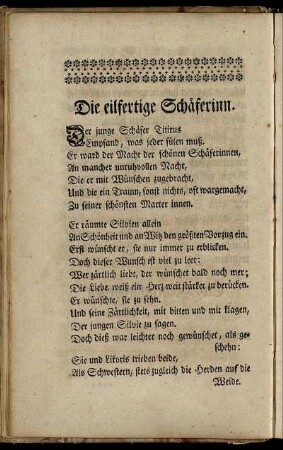 Die eilfertige Schäferinn.
Der junge Schäfer Titirus
Empfand, was jeder fülen muß.
Er ward der Macht der schönen Schäferinnen,
An mancher unruhvollen Nacht,
Die er mit Wünschen zugebracht,
Und die ein Traum, sonst nichts, oft wargemacht,
Zu seiner schönsten Marter innen.
Er räumte Silvien allein
An Schönheit und an Witz den größten Vorzug ein.
Erst wünscht er, sie nur immer zu erblicken.
Doch dieser Wunsch ist viel zu leer:
Wer zärtlich liebt, der wünschet bald noch mer;
Die Liebe weiß ein Herz weit stärker zu berücken.
Er wünschte, sie zu sehn.
Und seine Zärtlichkeit, mit bitten und mit klagen,
Der jungen Silvie zu sagen.
Doch dieß war leichter noch gewünschet, als ge-
schehn:
Sie und Likoris trieben beide,
Als Schwestern, stets zugleich die Herden auf die
Weide.